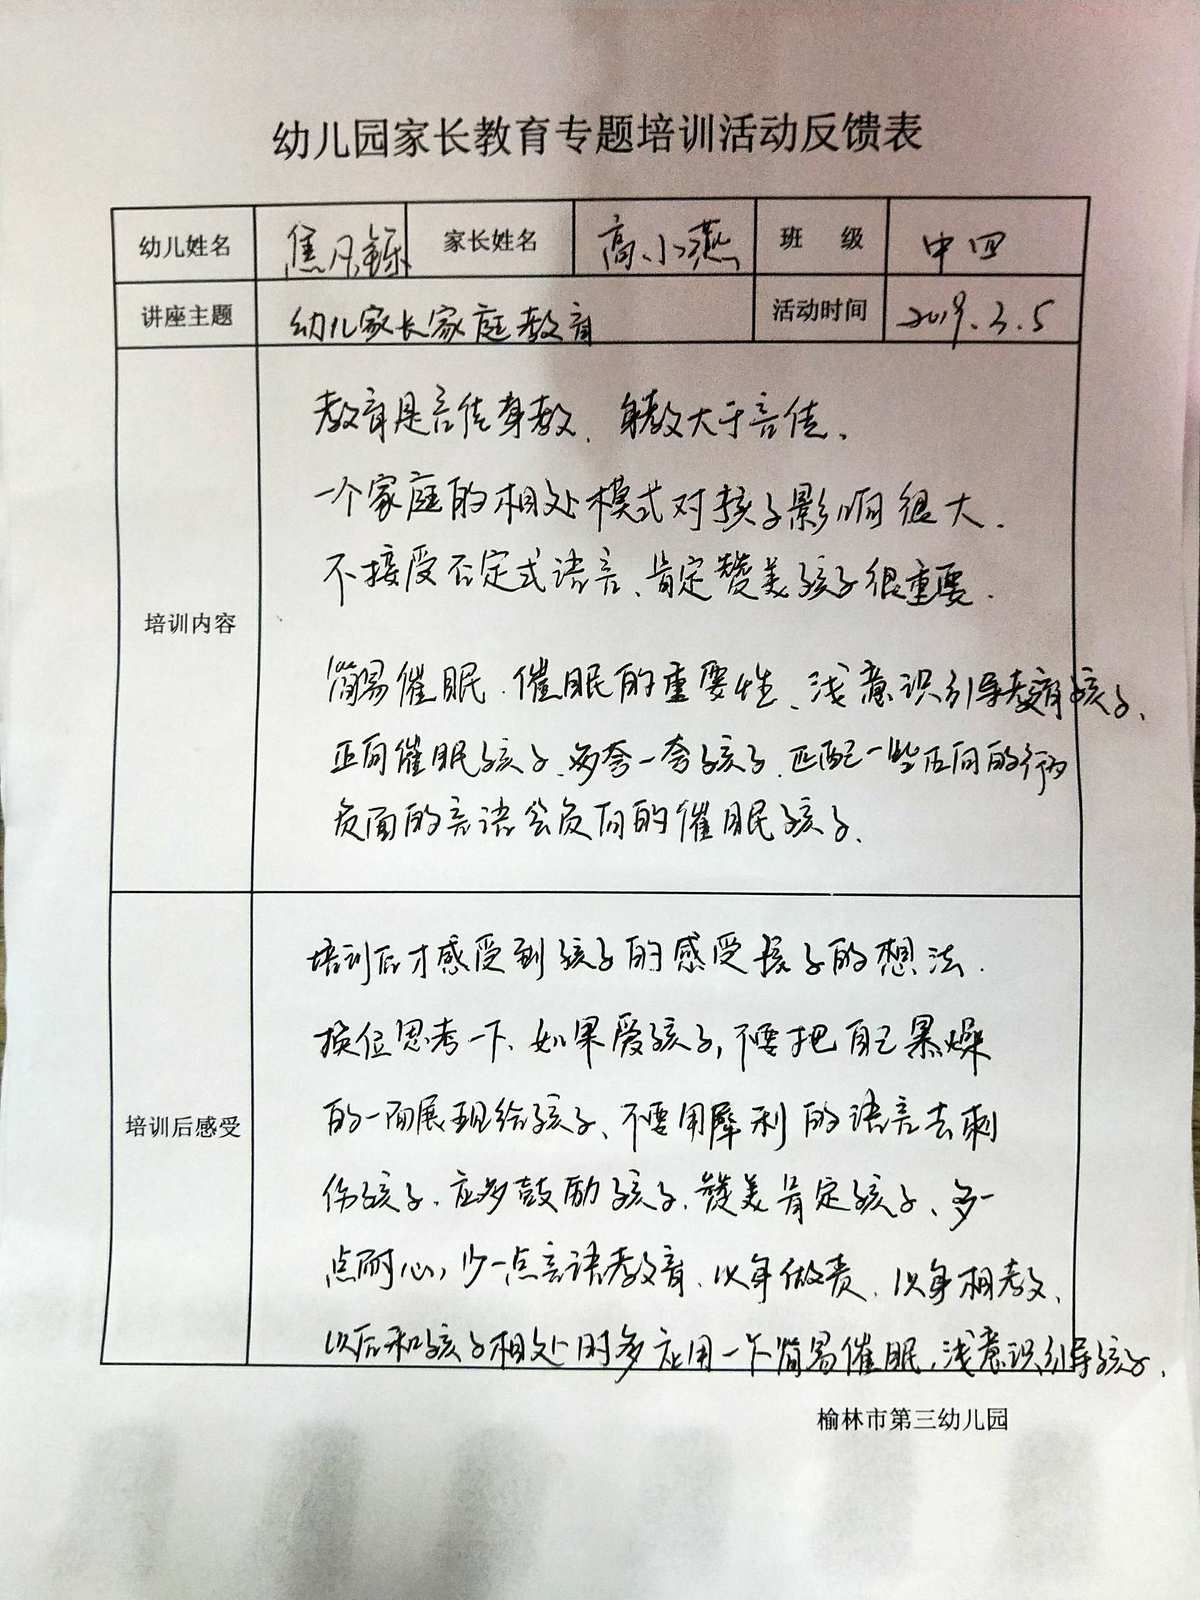 幼儿园家长教育专题培训活动反馈表
幼儿姓名 焦凡铄 家长姓名 高小燕 班 级 中四
讲座主题 幼儿家长家庭教育 活动时间 2019.3.5
培训内容
教育是言传身教、身教大于言传。
一个家庭的相处模式对孩子影响很大.
不接受否定式语言、肯定赞美孩子很重要.
简易催眠.催眠的重要性、浅意识引导教育孩子、
正向催眠孩子、多夸一夸孩子.匹配一些正向的行为
负面的言语会负向的催眠孩子.
培训后感受
培训后才感受到孩子的感受孩子的想法.
换位思考一下、如果爱孩子,不要把自己暴燥
的一面展现给孩子、不要用犀利的语言去刺
伤孩子.应多鼓励孩子.赞美肯定孩子、多一
点耐心,少一点言语教育.以身做责.以身相教、
以后和孩子相处时多应用一下简易催眠,浅意识引导孩子.
榆林市第三幼儿园